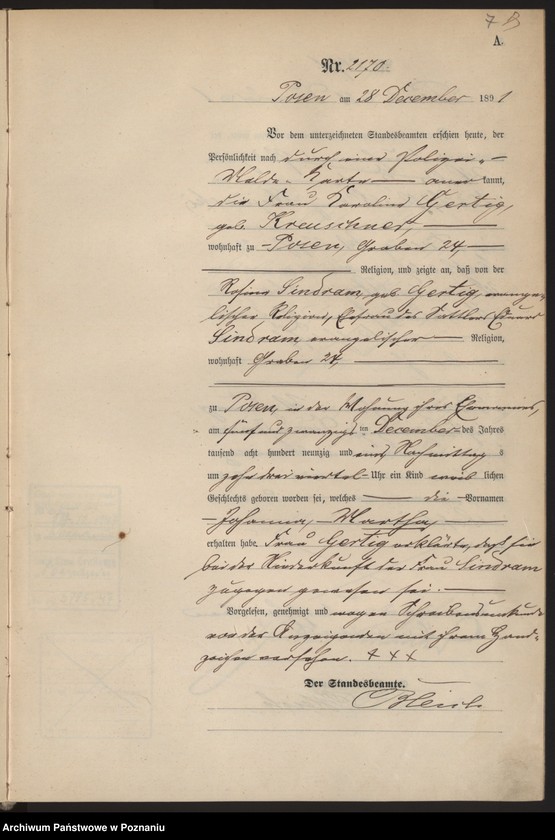 7 B
A.
Nr. 2170.
Posen am 28 December 1891
Vor dem unterzeichneten Standesbeamten erschien heute, der
Persönlichkeit nach durch eine Polizei-
Melde-Karte anerkannt,
die Frau Karoline Gertig,
geb. Kreuschner,
wohnhaft zu Posen, Graben 24,
Religion, und zeigte an, daß von der
Rosina Sindram, geb. Gertig, evange-
lischer Religion, Ehefrau des Sattlers Eduard
Sindram evangelischer Religion,
wohnhaft Graben 24,
zu Posen, in der Wohnung ihres Ehemannes,
am fünfundzwanzigsten December des Jahres
tausend acht hundert neunzig und eins Nachmittags
um zehn drei viertel Uhr ein Kind weiblichen
Geschlechts geboren worden sei, welches die Vornamen
Johanna, Martha,
erhalten habe. Frau Gertig erklärte, daß sie
bei der Niederkunft der Frau Sindram
zugegen gewesen sei.
Vorgelesen, genehmigt und wegen Schreibensunkunde
von der Anzeigenden mit ihrem Hand-
zeichen versehen. + + +
Der Standesbeamte.
Archiwum Państwowe w Poznaniu